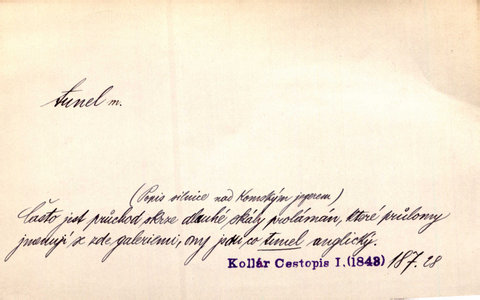 tunel m.
(Popis silnice nad Komským jezerem)
Často jest průchod skrze dlouhé skály prolámán, které průlomy
jmenují se zde galeriemi, ony jsou co tunel anglický.
Kollár Cestopis I. (1843) 187.28